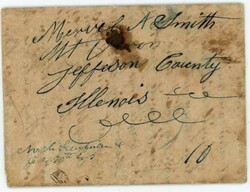 Mervel N Smith
Mt Vernon
Jeffeson County
Illenois
10